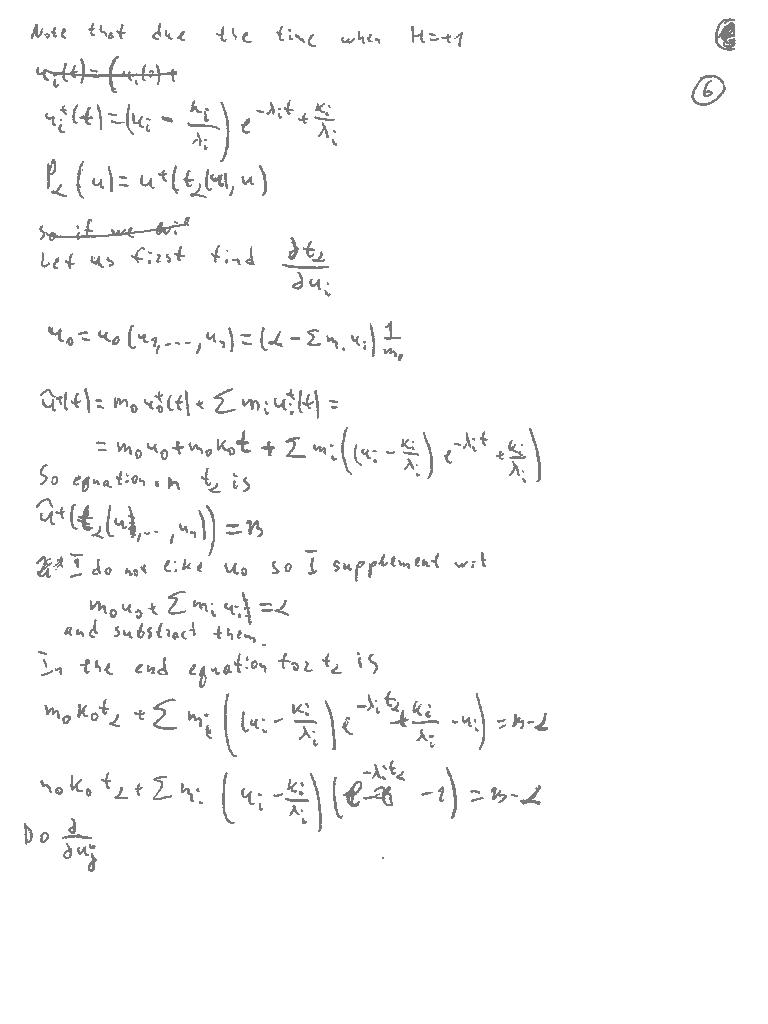 Note that due the time when H=+1
6
u_i^+(t)=(u_i - k_i/λ_i) e^{-λ_i t} + k_i/λ_i
P_α(u)=u^+(t_α(u),u)
So if we
Let us first find ∂t_α/∂u_i
u_0=u_0(u_1,...,u_n)=(α-Σm_i u_i) 1/m_0
û^+(t)=m_0 u_0^+(t)+Σ m_i u_i^+(t)=
=m_0 u_0+m_0 k_0 t + Σ m_i((u_i - k_i/λ_i) e^{-λ_i t} + k_i/λ_i)
So equation on t_α is
û^+(t_α(u_1,..,u_n))=β
I do not like u_0 so I supplement wit
m_0 u_0+Σ m_i u_i=α
and substract them.
In the end equation for t_α is
m_0 k_0 t_α + Σ m_i((u_i - k_i/λ_i) e^{-λ_i t_α} + k_i/λ_i - u_i)=β-α
m_0 k_0 t_α + Σ m_i (u_i - k_i/λ_i)(e^{-λ_i t_α} - 1)=β-α
Do ∂/∂u_j